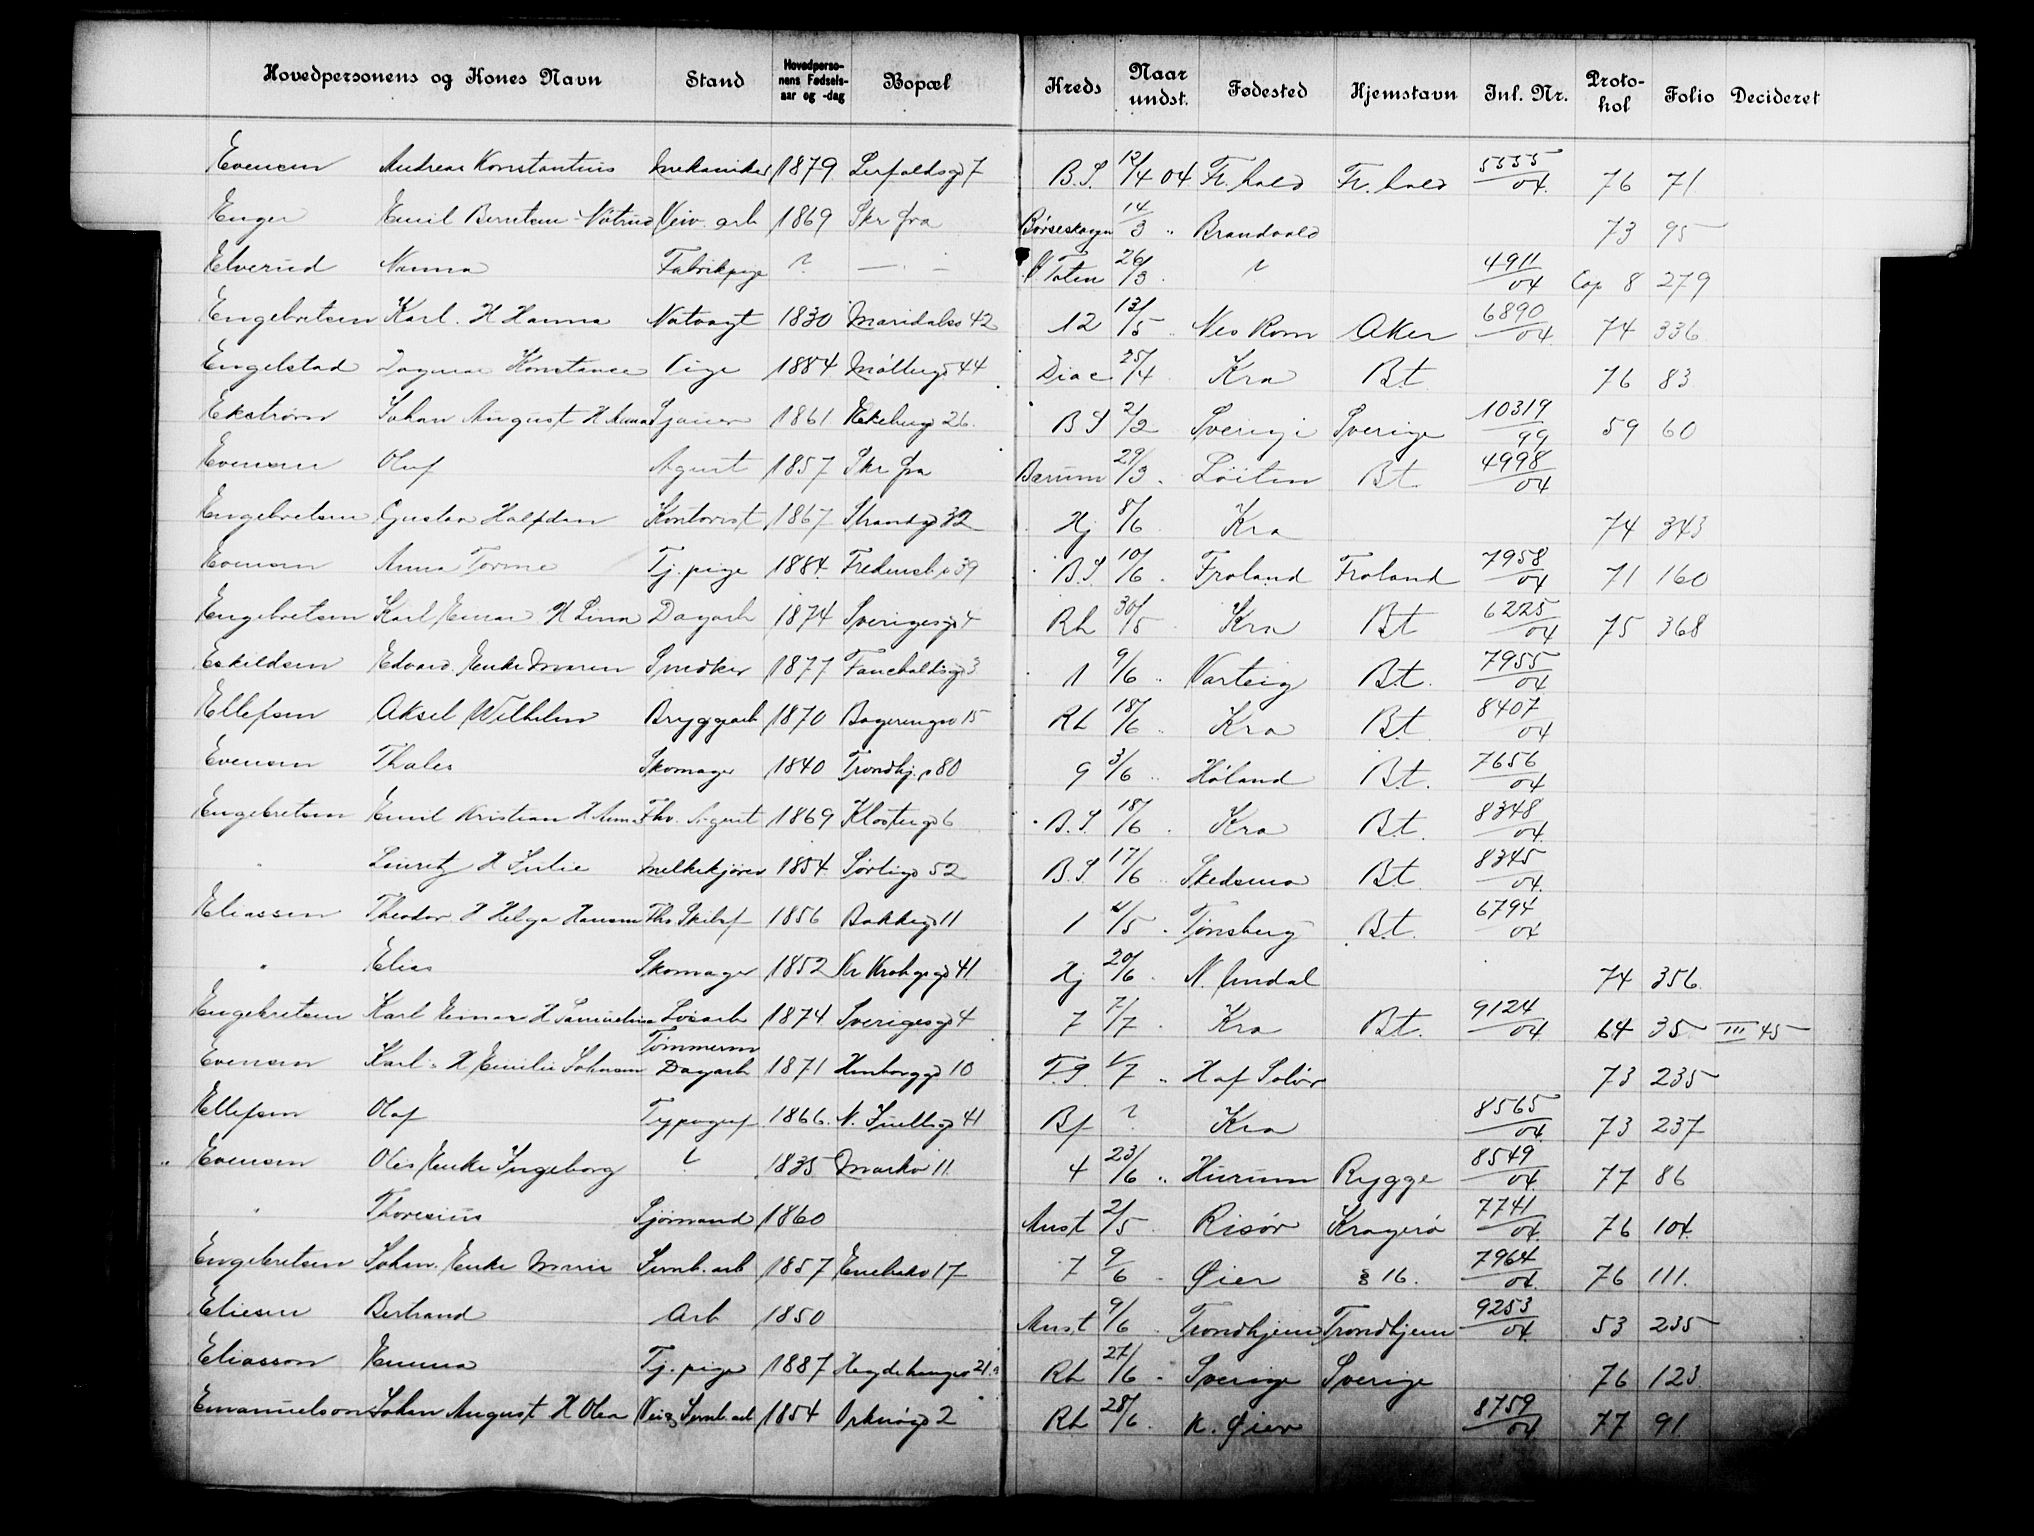 Hovedpersonens og Kones Navn Stand Hovedpersonens Fødselsaar og -dag Bopæl Kreds Naar undst. Fødested Hjemstavn Inl. Nr. Protokol Folio Decideret
Evensen Andreas Konstantius Mekaniker 1879 Lerfaldsg 7 B.S. 12/4 04 Fr.hald Fr.hald 5535/04 76 71
Enger Emil Berntsen Veiv. arb 1869 Skr fra Børseskogn 14/3 " Brandvald 73 95
Elverud Nanna Fabrikpige ? — Toten 26/3 ? 4911/04 Cop 8 279
Engebretsen Karl. H Hanna Natvagt 1830 Maridalsv 42 12 13/5 Nes Rom Aker 6890/04 74 336
Engelstad Dagmar Konstance Pige 1884 Møllerg 44 Diac 25/4 Kra Bt 76 83
Ekstrøm Johan August H Anna Sjauer 1861 Ekebergg 26 B S 2/2 Sverige Sverige 10319/99 59 60
Evensen Oluf Agent 1857 Skr fra Bærum 29/3 Löiten Bt 4998/04
Engebretsen Gustav Halfdan Kontorist 1867 Strandg 32 Hj 8/6 Kra 74 343
Evensen Anna Tomine Tj. pige 1884 Fredensb.v 39 B.S 10/6 Froland Froland 7958/04 71 160
Engebretsen Karl Einar H Lina Dagarb 1874 Sverigesg 4 Rh 30/5 Kra Bt 6225/04 75 368
Eskildsen Edvard. Enke Maren Snedker 1877 Faucholdsg 3 1 9/6 Varteig Bt. 7955/04
Ellefsen Aksel Wilhelm Bryggearb 1870 Bogerengv 15 Rh 18/6 Kra Bt. 8407/04
Evensen Thales Skomager 1840 Trondhj.v 80 9 3/6 Høland Bt. 7656/04
Engebretsen Emil Kristian H Anna Fhv. Agent 1869 Klosterg 6 B.S. 18/6 Kra Bt. 8348/04
" Lauritz H Julie Melkekjører 1854 Sørligg 52 B.S 17/6 Skedsmo Bt. 8345/04
Eliassen Theodor H Helga Hansen Fhv Skibsf 1856 Bakkeg 11 1 4/5 Tönsberg Bt. 6794/04
" Elias Skomager 1852 Kr Krohgsg 41 Hj 20/6 N. Undal 74 356
Engebretsen Karl Einar H Pauueline Løsarb 1874 Sverigesg 4 7 7/7 Kra Bt. 9124/04 64 35 III 45
Evensen Karl. H Emilie Johnsen Tømmerm Dagarb 1871 Heimborgg 10 F.S. 1/7 " Hof Solør 73 235
Ellefsen Olaf Typograf 1866 N. Snellsg 41 Bf ? Kra 8565/04 73 237
" Evensen Oles Enke Ingeborg ? 1835 Markv 11 4 23/6 " Hurum Rygge 8549/04 77 86
" Thoresius Sjømand 1860 Anst 2/5 Risør Kragerø 7741/04 76 104
Engebretsen Johan. Enke Marie Jernb.arb 1857 Enebakv 17 7 9/6 Øier § 16. 7964/04 76 111.
Eliesen Bertrand Arb 1850 Anst 9/6 Trondhjem Trondhjem 9253/04 53 235
Eliasson Emma Tj. pige 1887 Hegdehaugsv 21 Rh 27/6 Sverige Sverige 76 123
Emanuelson Johan August H Olea Jernb.arb 1854 Orknög 2 Rh 28/6 K. Øier 8759/04 77 91